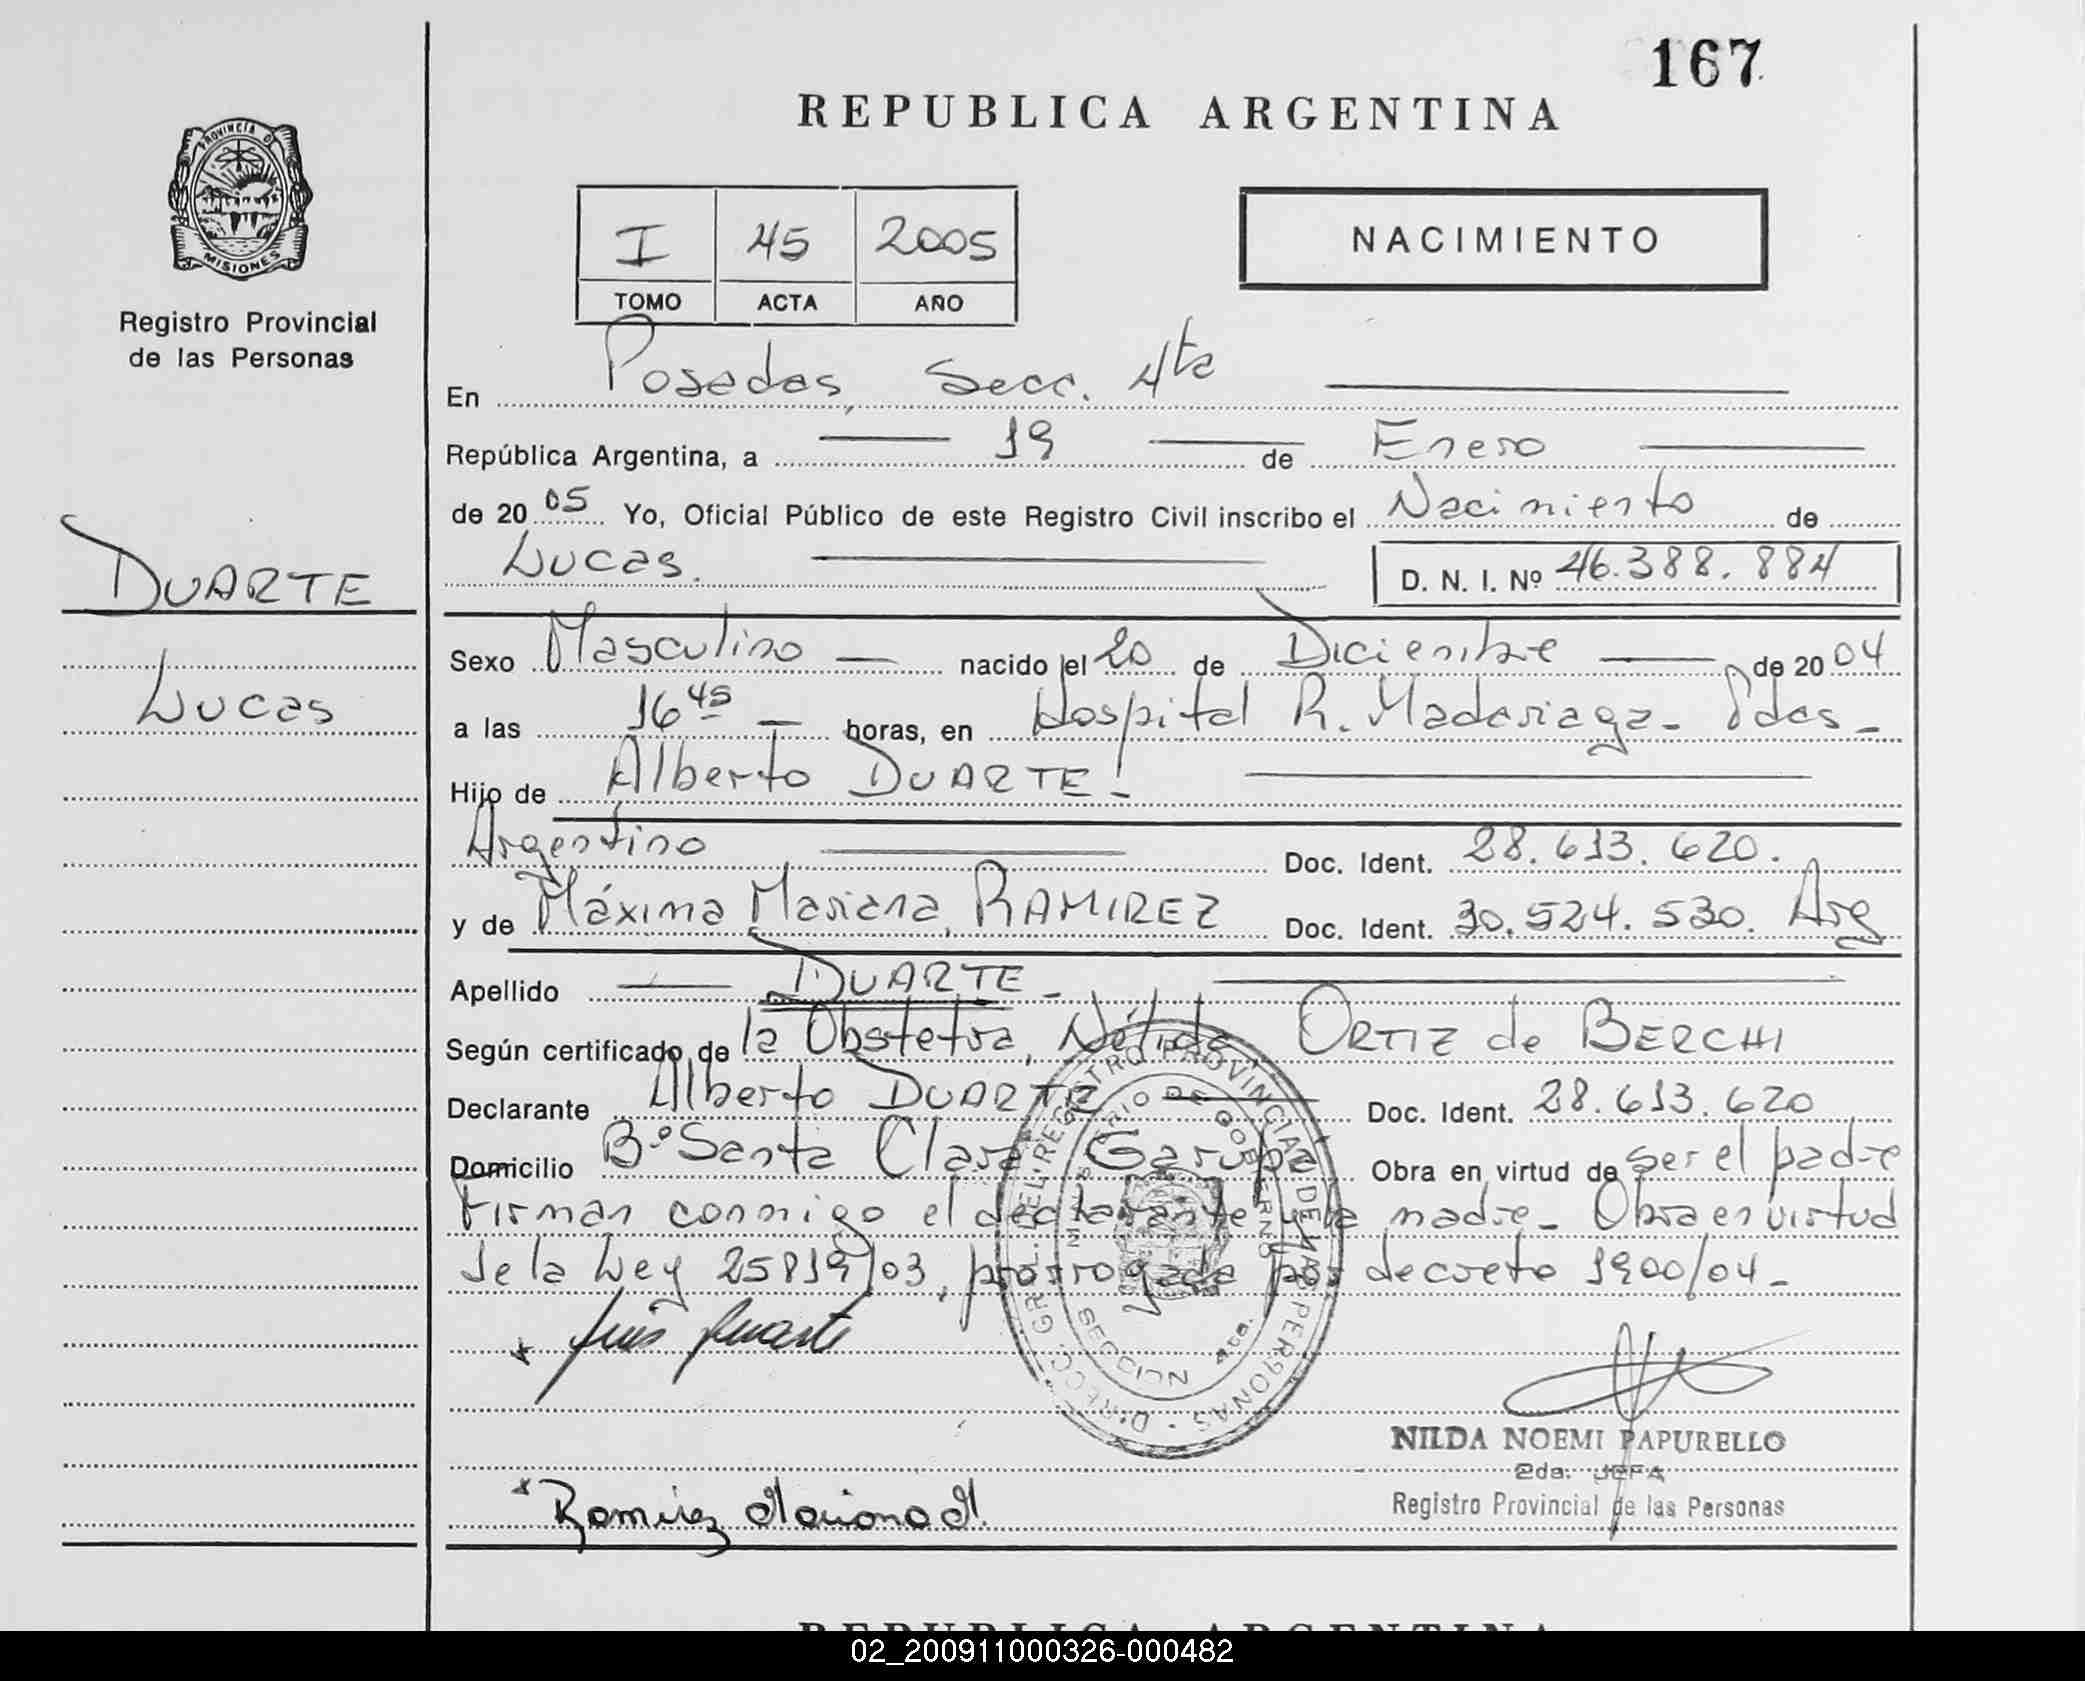 167
REPUBLICA ARGENTINA
PROVINCIA D
MISIONES
Registro Provincial
de las Personas
I 45 2005
TOMO ACTA AÑO
NACIMIENTO
En Posadas, Secc. 4ta
República Argentina, a 19 de Enero
de 2005 Yo, Oficial Público de este Registro Civil inscribo el Nacimiento de
Lucas. D. N. I. Nº 46.388.884
DUARTE
Lucas
Sexo Masculino nacido el 20 de Diciembre de 2004
a las 16 45 horas, en Hospital R. Madariaga - Pdas -
Hijo de Alberto DUARTE -
Argentino Doc. Ident. 28.613.620.
y de Máxima Mariana, RAMIREZ Doc. Ident. 30.524.530. Arg
Apellido DUARTE -
Según certificado de la Obstetra, Nélida ORTIZ de BERCHI
Declarante Alberto DUARTE Doc. Ident. 28.613.620
Domicilio Bº Santa Clara Garupá Obra en virtud de ser el padre
Firman conmigo el declarante y la madre - Obra en virtud
de la Ley 25819/03, prorrogada por decreto 1900/04 -
DIRECC. GRAL. DEL REGISTRO PROVINCIAL DE LAS PERSONAS
MINISTERIO DE GOBIERNO
SECCION 4ta.
Luis Duarte
NILDA NOEMI PAPURELLO
2da. JEFA
Registro Provincial de las Personas
Ramirez Mariana M.
REPUBLICA ARGENTINA
02_200911000326-000482